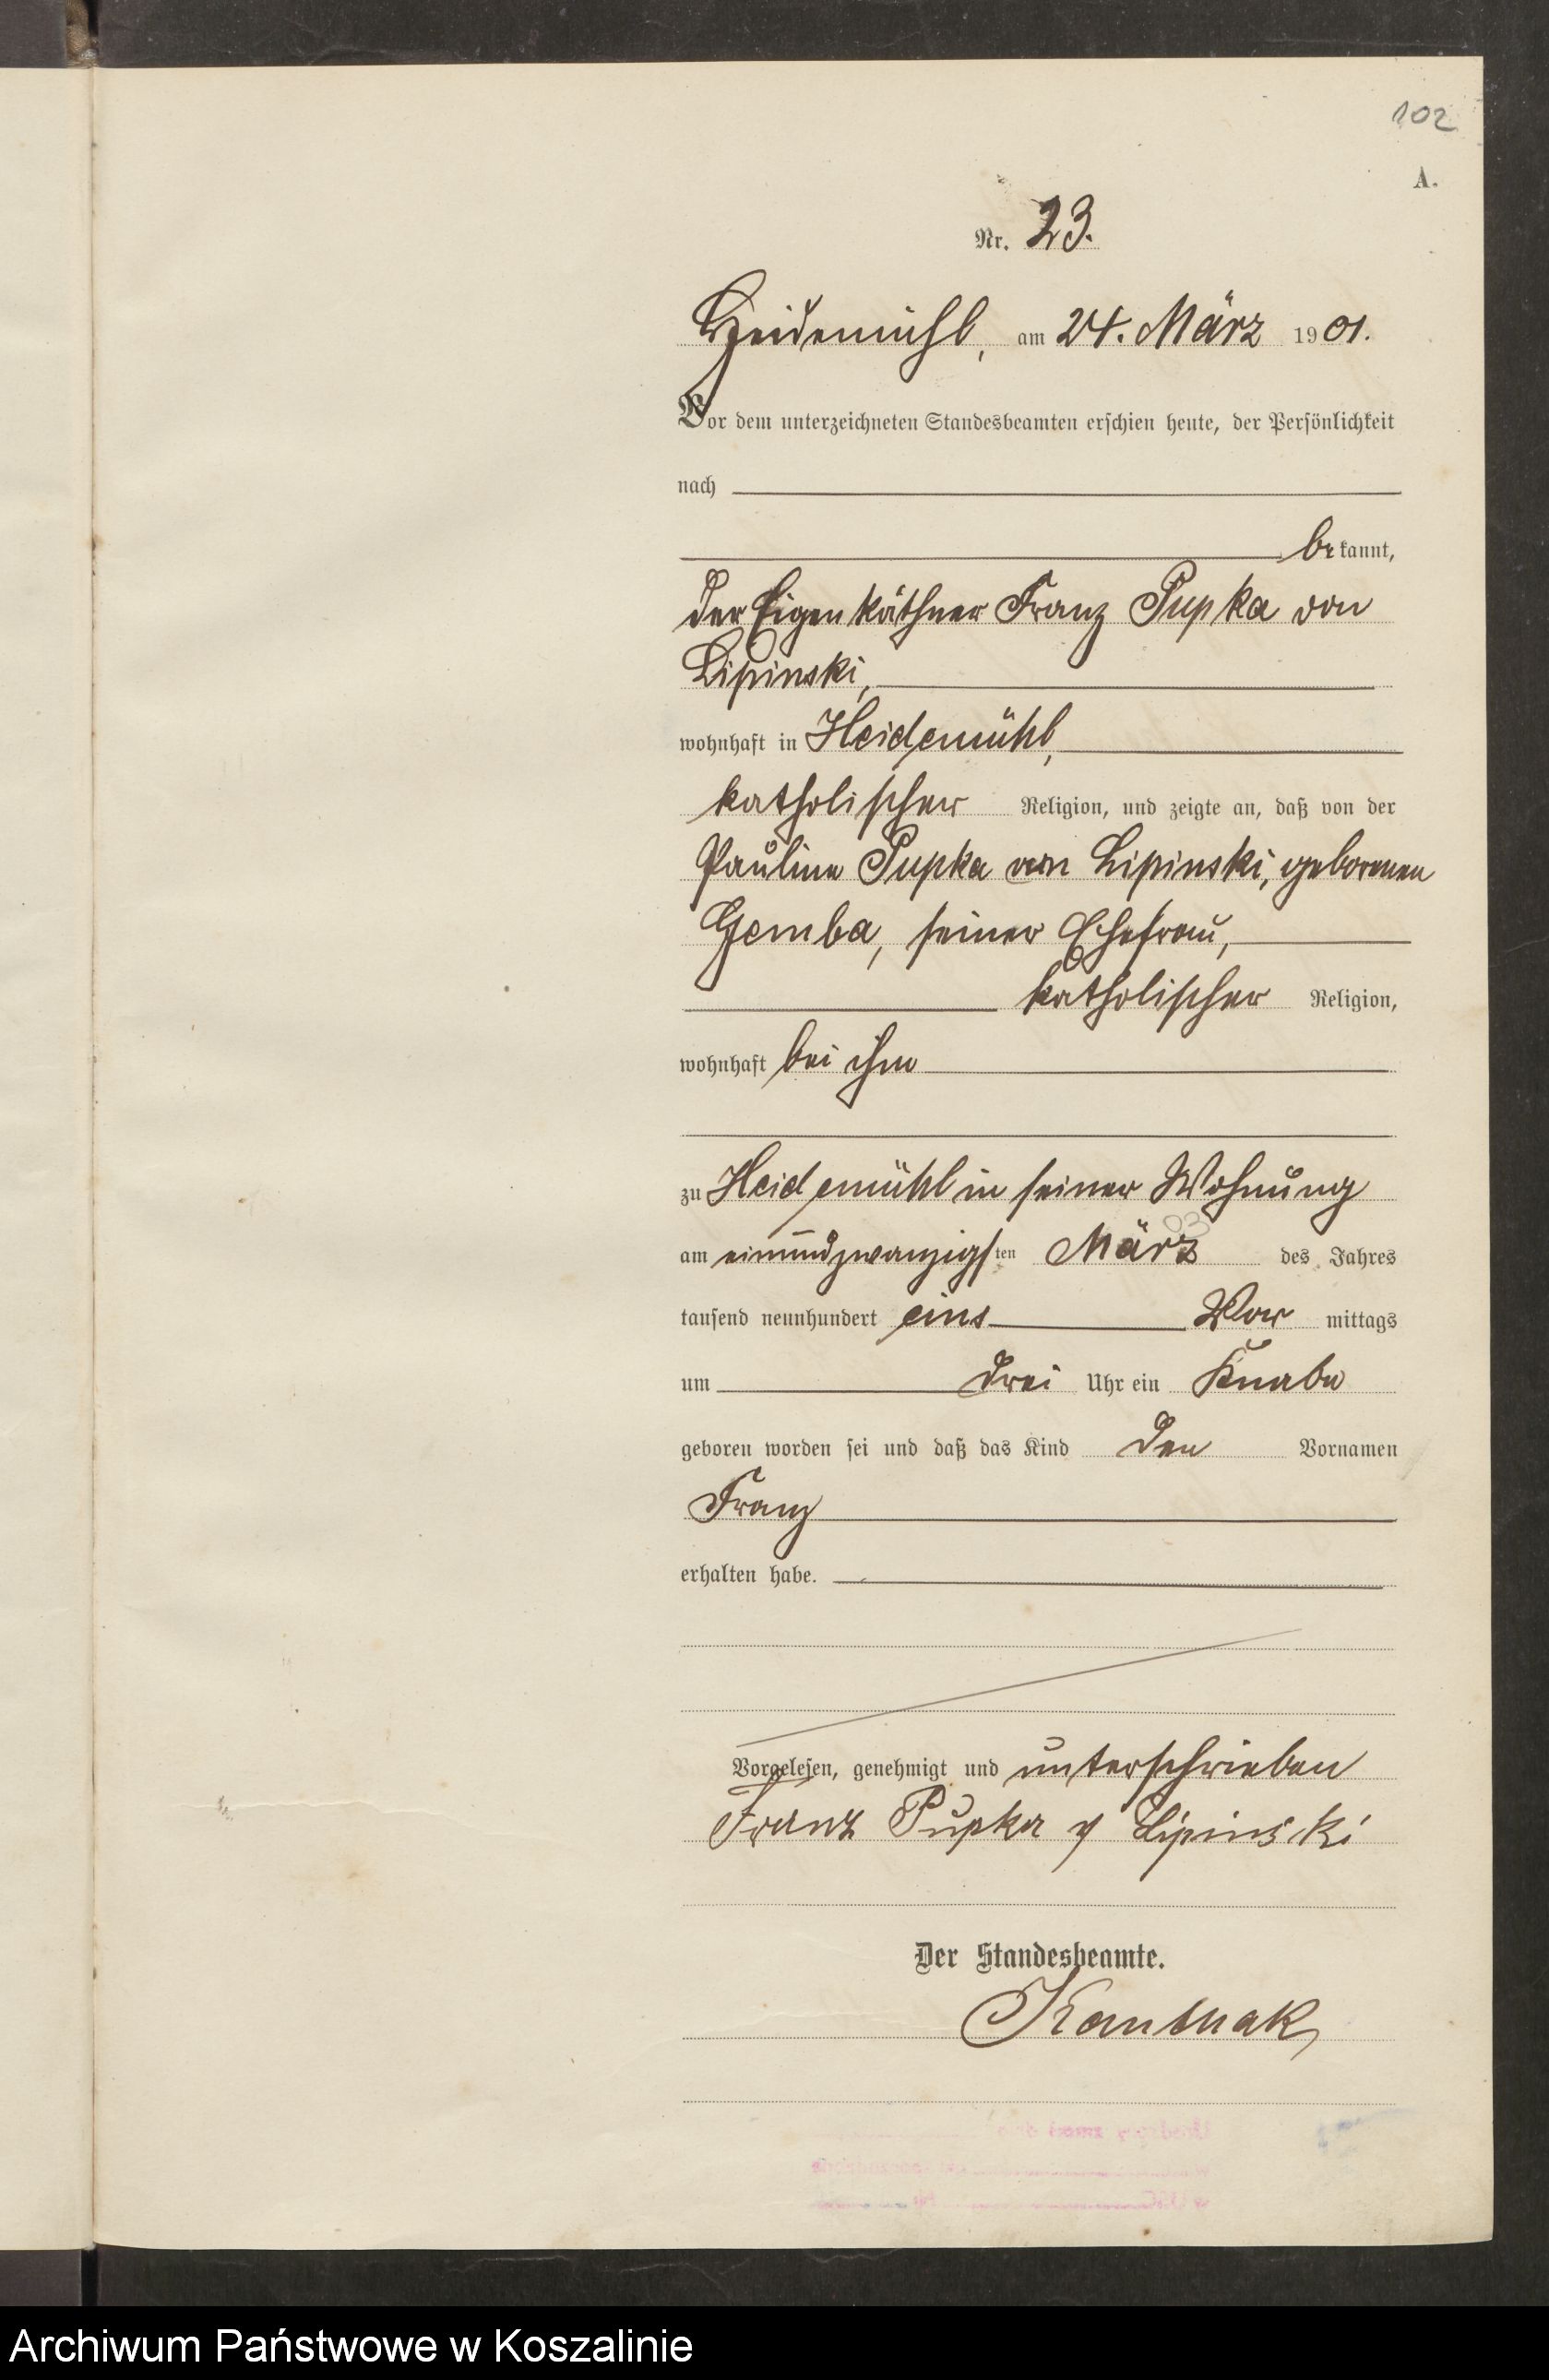 102
A.
Nr. 23.
Heidemühl, am 24. März 1901.
Vor dem unterzeichneten Standesbeamten erschien heute, der Persönlichkeit
nach
bekannt,
der Eigenkäthner Franz Pupka von
Lipinski,
wohnhaft in Heidemühl,
katholischer Religion, und zeigte an, daß von der
Pauline Pupka von Lipinski, geborenen
Gemba, seiner Ehefrau,
katholischer Religion,
wohnhaft bei ihm
zu Heidemühl in seiner Wohnung
am einundzwanzigsten März des Jahres
tausend neunhundert eins Vor mittags
um drei Uhr ein Knabe
geboren worden sei und daß das Kind den Vornamen
Franz
erhalten habe.
Vorgelesen, genehmigt und unterschrieben
Franz Pupka v Lipinski
Der Standesbeamte.
Archiwum Państwowe w Koszalinie